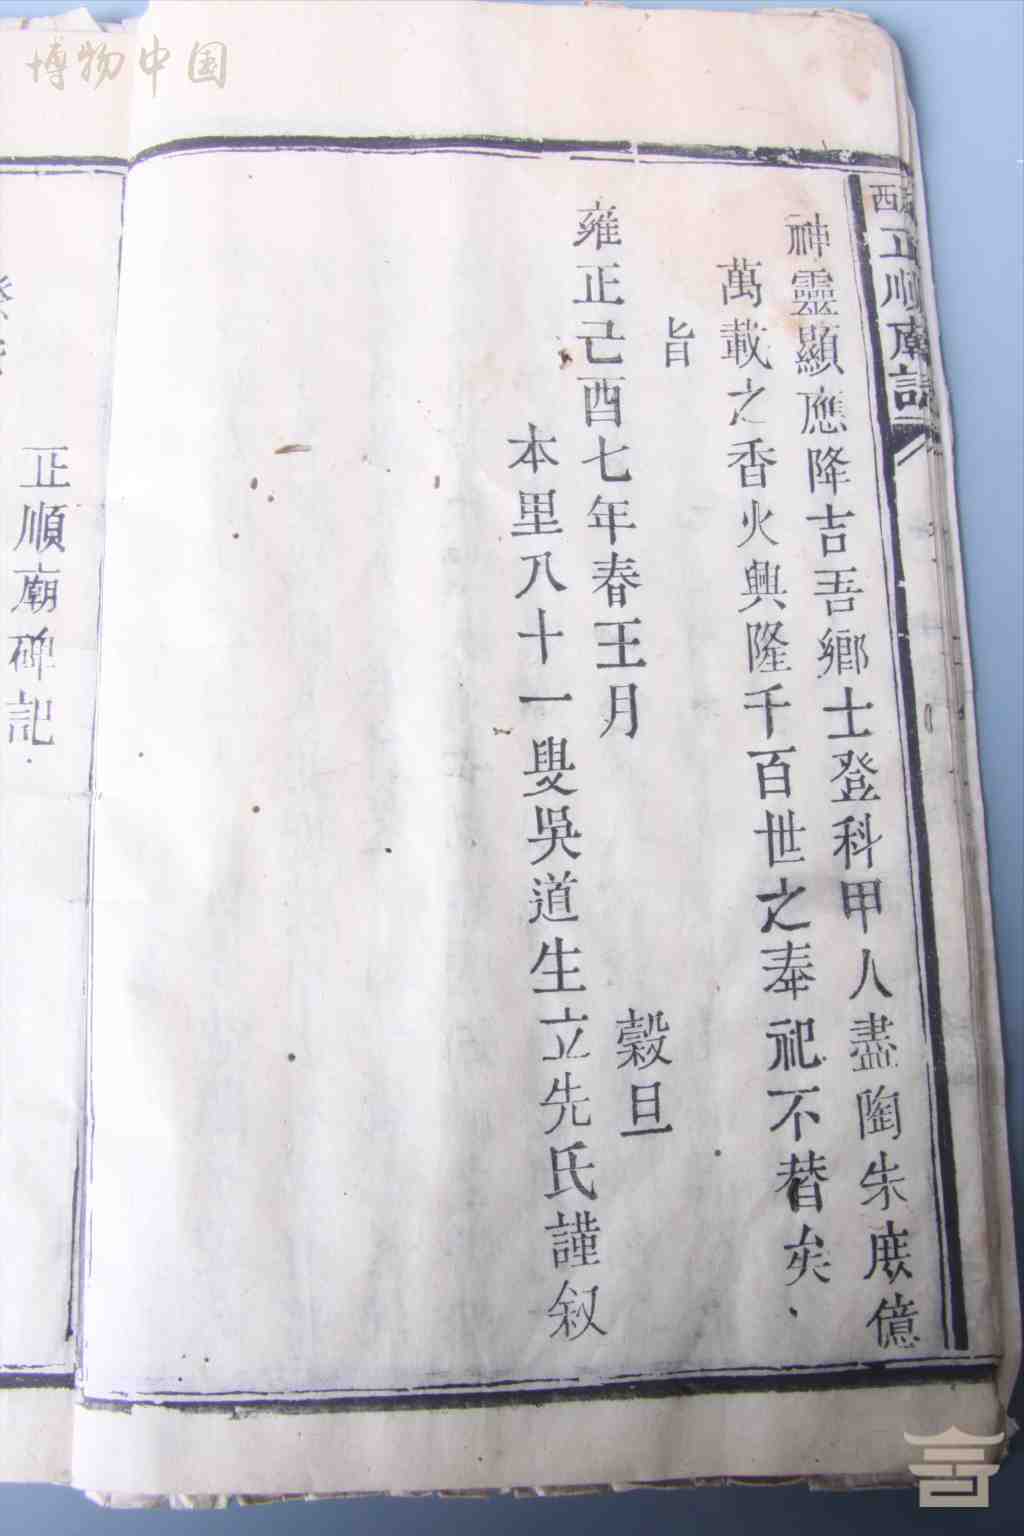 神靈顯應降吉吾鄉士登科甲人盡陶朱庶億
萬載之香火興隆千百世之奉祀不替矣、
旨
雍正己酉七年春王月 穀旦
本里八十一叟吳道生立先氏謹叙
正順廟碑記
西
正順廟誌
博物中国